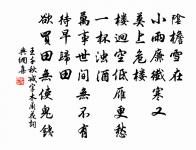 陰檐雪在
小雨廉纖寒又
莫上危樓
樓迥空低雁更愁
一杯濁酒
萬事世間無不有
待早歸田
欲買田無使鬼錢
王千秋減字木蘭花詞